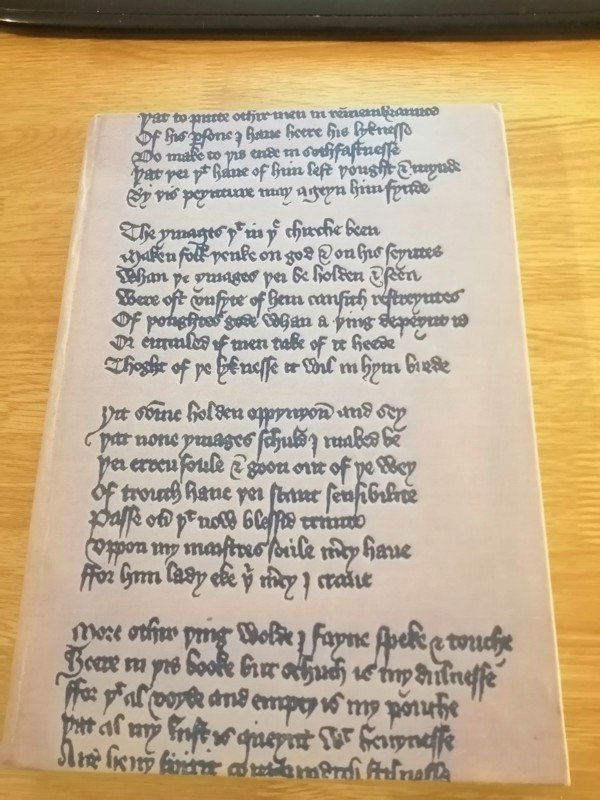 yat to putte othir men in remembraunce
Of his psone I haue heere his lyknesse
Do make to yis ende in sothfastnesse
yat yei yt haue of him left yought & mynde
By yis peynture may ageyn him fynde
The ymages yt in ye chirche been
Maken folk yenke on god & on his seyntes
Whan ye ymages yei be holden & seen
Were oft vnsyte of hem causith restreyntes
Of youghtes gode whan a ying depeynt is
Or entailed if men take of it heede
Thoght of ye lyknesse it wil in hym brede
Yit some holden oppynyon and sey
yat none ymages schuld I maked be
yei erren foule & goon out of ye wey
Of trouth haue yei scant sensibilite
Passe ouer yt now blessid trinite
Vppon my maistres soule mcy haue
ffor him lady eke yi mcy I craue
More othir ying wolde I fayne speke & touche
Heere in yis booke but schuch is my dulnesse
ffor yt al voyde and empty is my pouche
yat al my lust is queynt wt heuynesse
And heuy spirit comaundith stilnesse